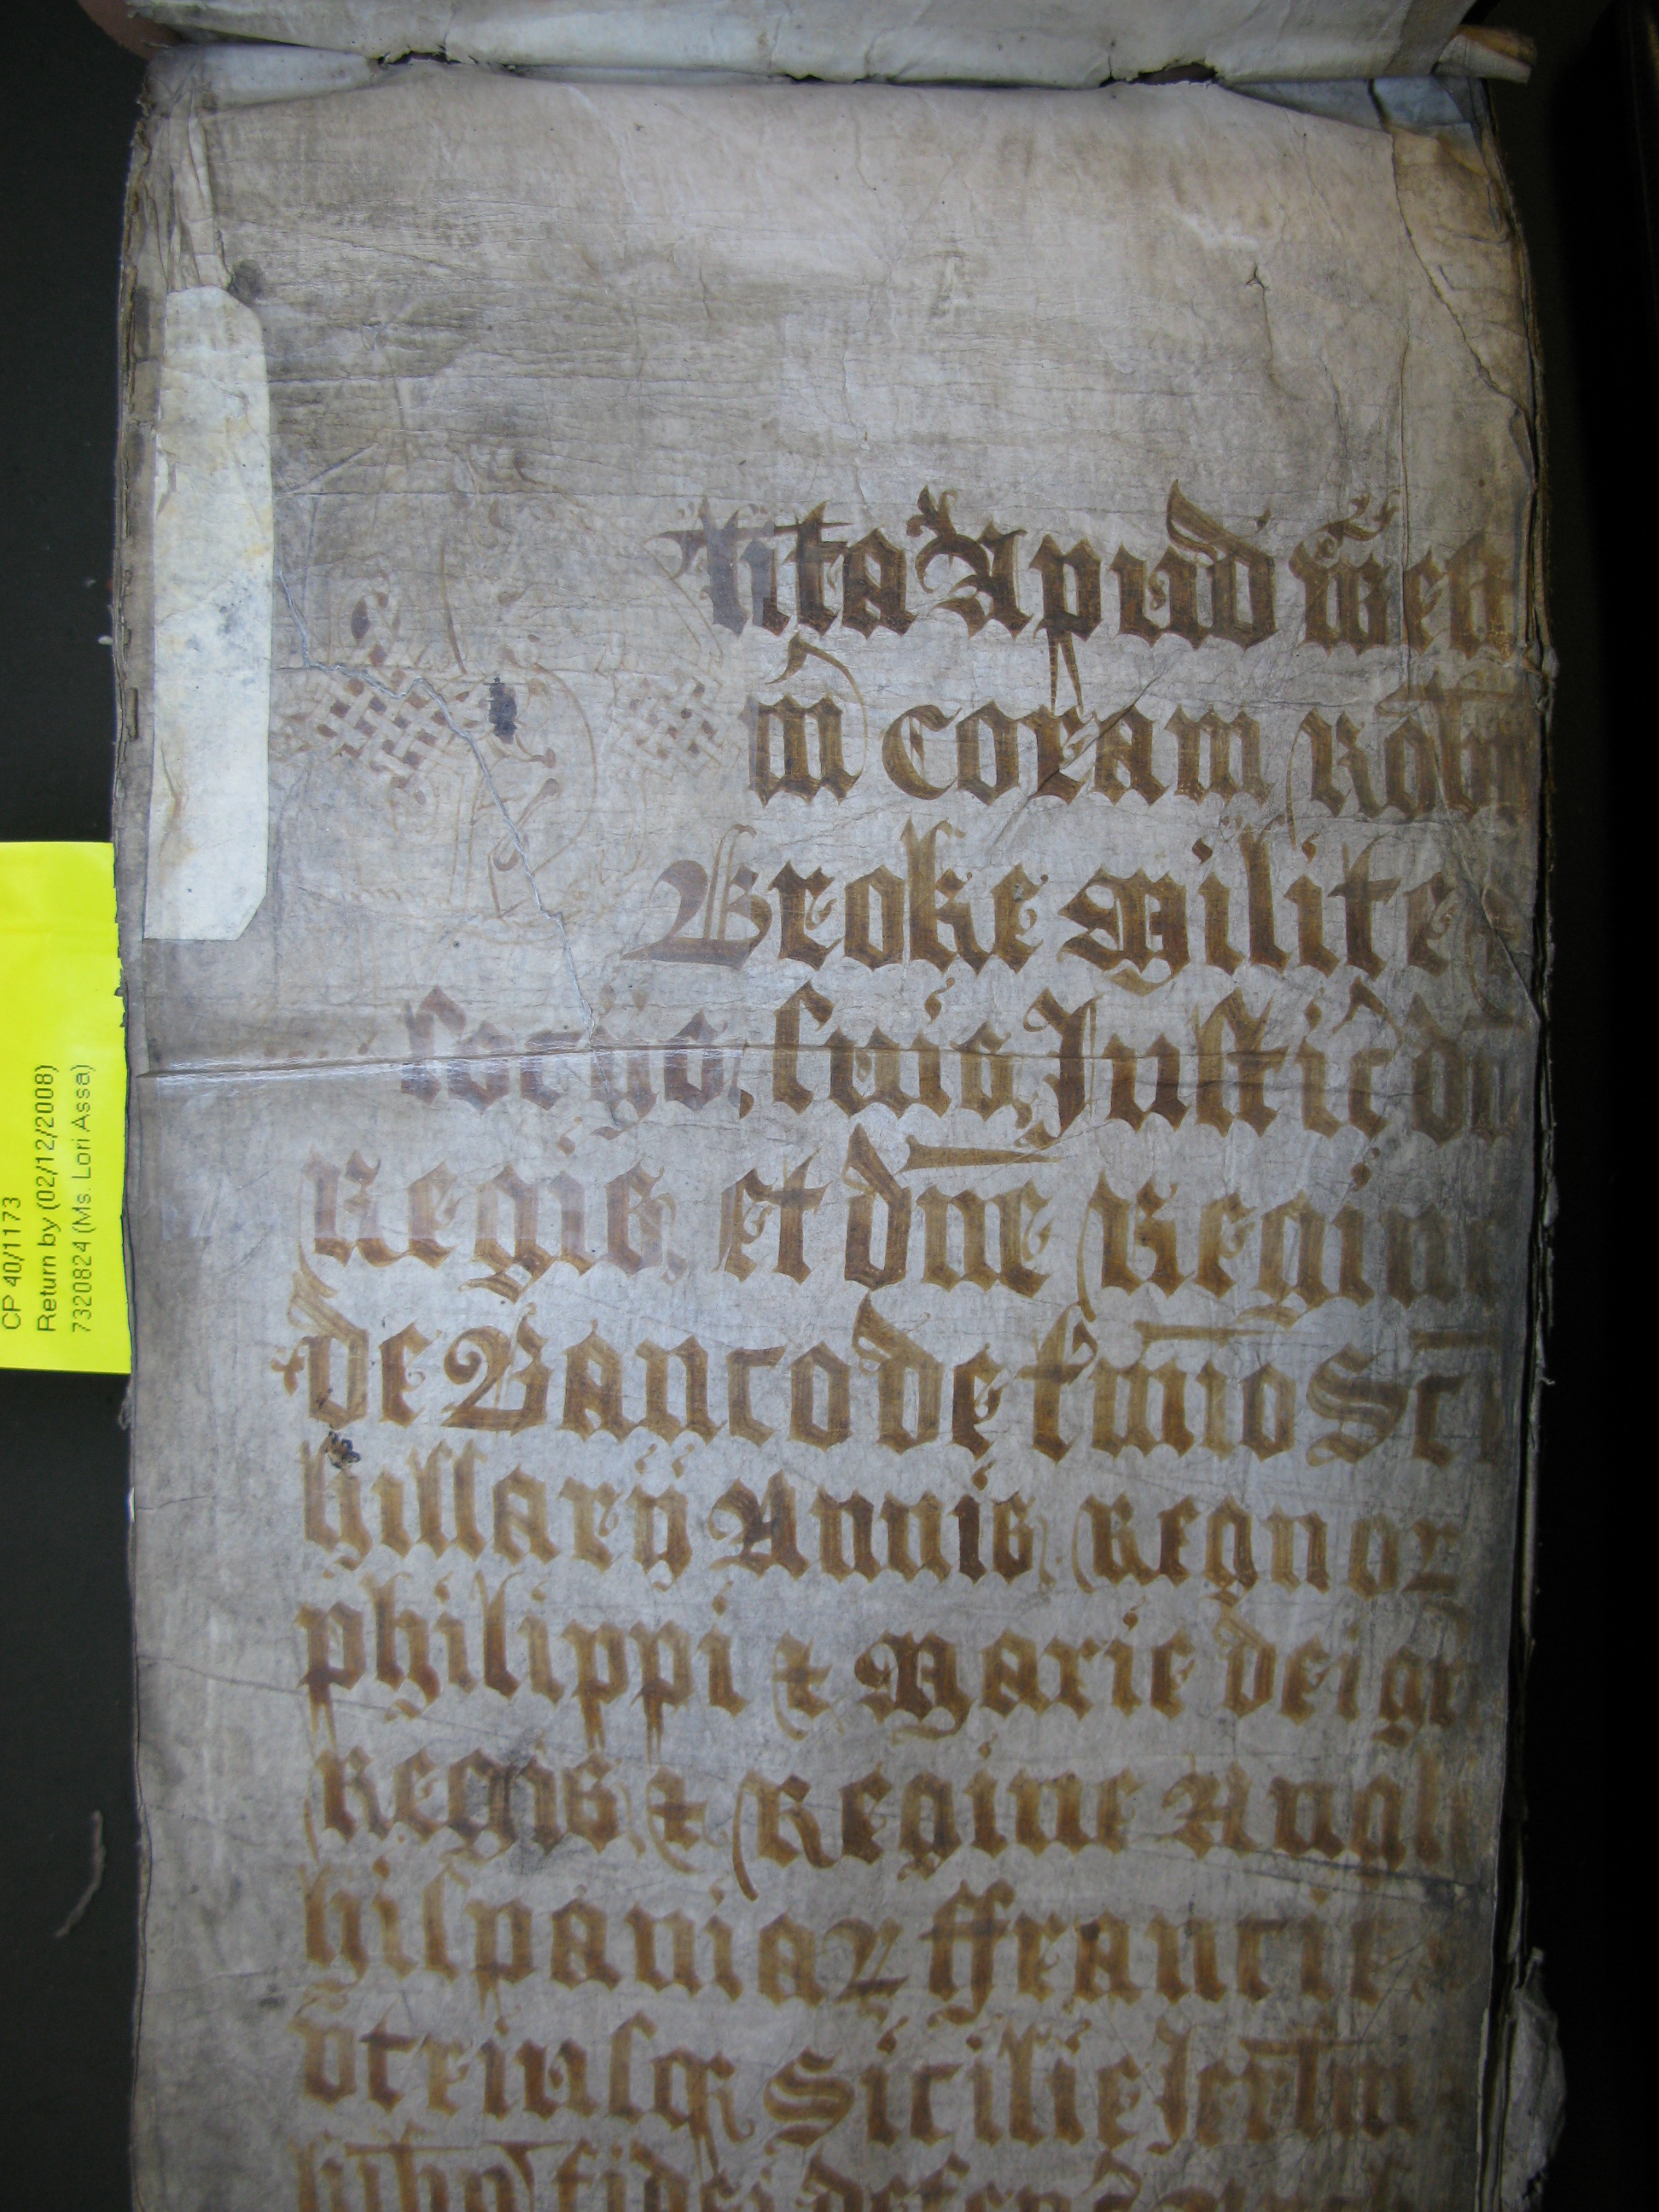 CP 40/1173
Return by (02/12/2008)
7320824 (Ms. Lori Assa)
lita Apud
coram
Broke Milite
Socijs suis Justic
Regis et dne Regine
de Banco de Scī
hillarij Annis Regnoꝝ
philippi & Marie dei
Regis & Regine Angl
hispaniaꝝ ffrancie
vtriusqꝫ Sicilie Jerlm
hibn fidei